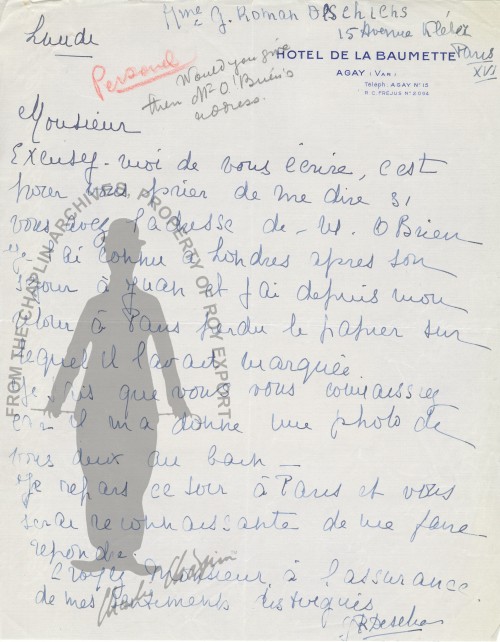 Mme J. Roman Deschichs
15 Avenue Kléber
Paris
XVI
Lundi
Personal
Would you give
them Mr O'Brien's
address.
HOTEL DE LA BAUMETTE
AGAY (VAR)
Téléph: AGAY Nº 15
R. C. FRÉJUS Nº 2094
Monsieur
Excusez-moi de vous écrire, c'est
pour vous prier de me dire si
vous avez l'adresse de M. O Brien
que j'ai connu à Londres après son
séjour à Juan et j'ai depuis mon
retour à Paris perdu le papier sur
lequel il l'avait marquée
Je sais que vous vous connaissez
car il m'a donné une photo de
vous deux au bain —
Je repars ce soir à Paris et vous
serai reconnaissante de me faire
répondre.
Croyez Monsieur, à l'assurance
de mes sentiments distingués
FROM THE CHAPLIN ARCHIVES, PROPERTY OF ROY EXPORT
Charles Chaplin